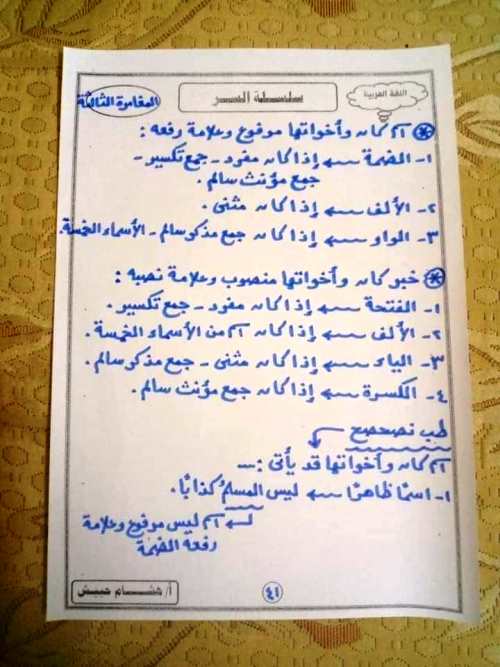 اللغة العربية
سلسلة النسر
المغامرة الثالثة
* اسم كان وأخواتها مرفوع وعلامة رفعه :
١- الضمة ← إذا كان مفرد - جمع تكسير -
جمع مؤنث سالم .
٢- الألف ← إذا كان مثنى .
٣- الواو ← إذا كان جمع مذكر سالم - الأسماء الخمسة .
* خبر كان وأخواتها منصوب وعلامة نصبه :
١- الفتحة ← إذا كان مفرد - جمع تكسير .
٢- الألف ← إذا كان اسم من الأسماء الخمسة .
٣- الياء ← إذا كان مثنى - جمع مذكر سالم .
٤- الكسرة ← إذا كان جمع مؤنث سالم .
طب نصحصح
اسم كان وأخواتها قد يأتى : ....
١- اسمًا ظاهرًا ← ليس المسلمُ كذابًا .
اسم ليس مرفوع وعلامة
رفعه الضمة
أ/ هشام حبيش
٤١